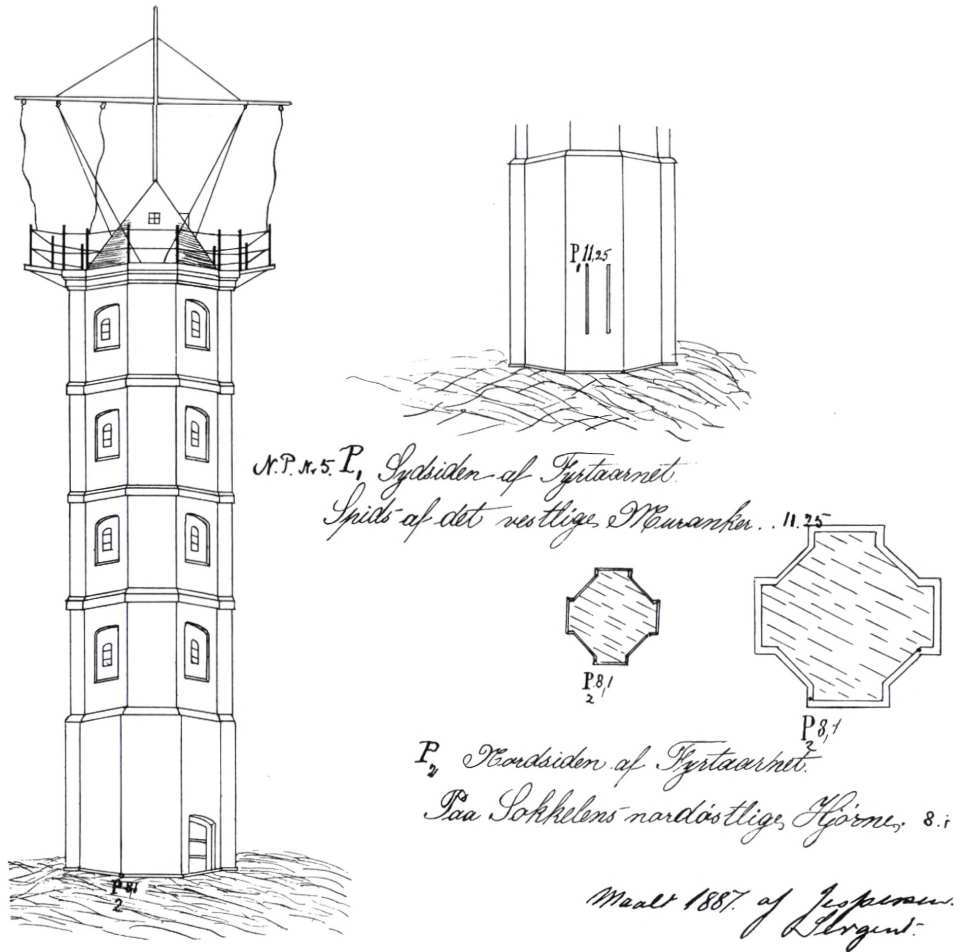 P, 11,25
N.P. Nr. 5. P, Sydsiden af Fyrtaarnet.
Spids af det vestlige Muranker. . 11.25
P 8,1
2
P 8,1
2
P 2 Nordsiden af Fyrtaarnet.
Paa Sokkelens nordøstlige Hjørne. 8.1
P 8,1
2
Maalt 1887. af Jespersen.
Sergent.